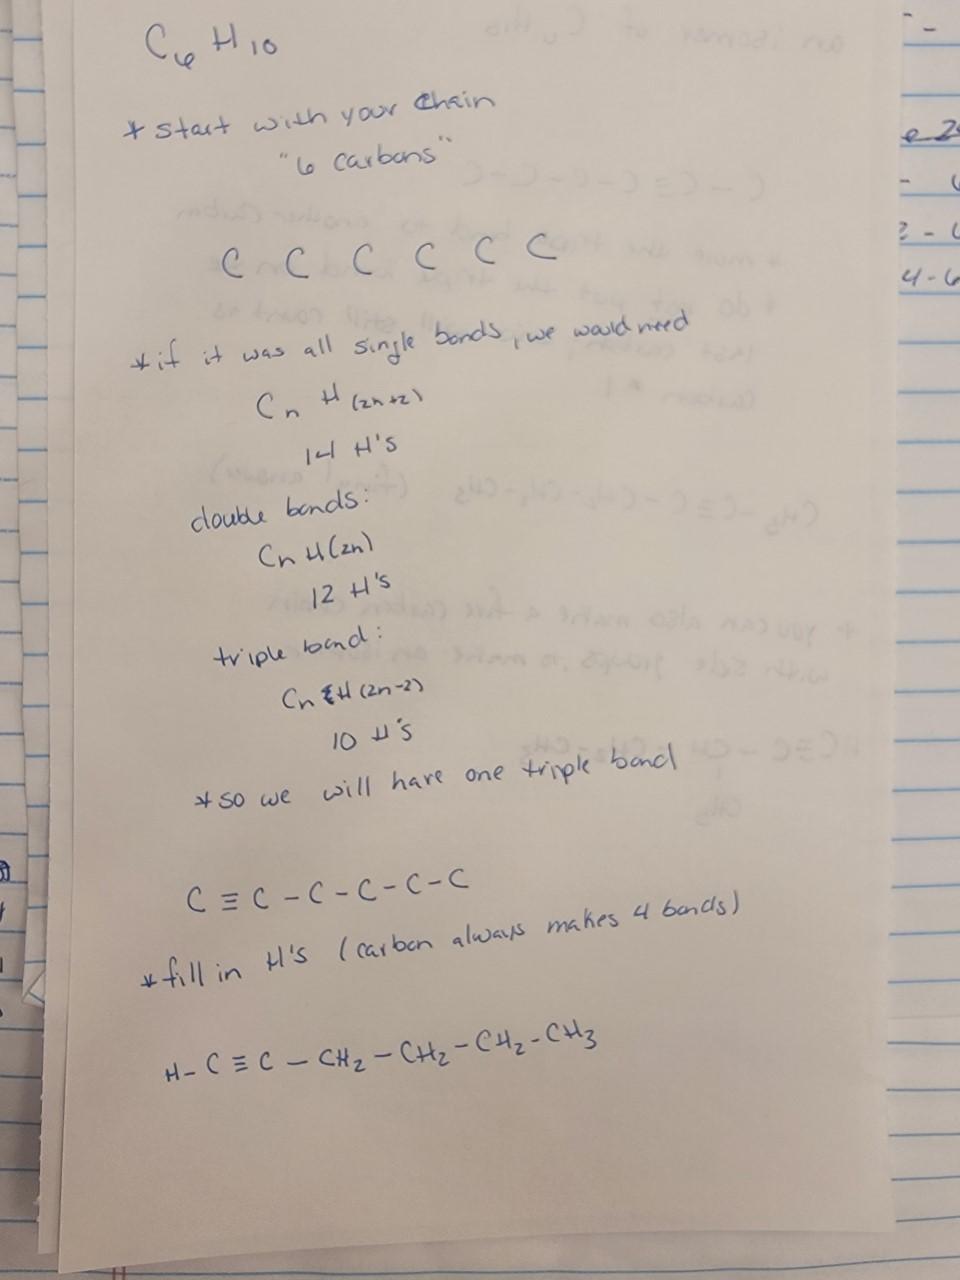 C6 H10
* start with your chain
"6 carbons"
C C C C C C
* if it was all single bonds, we would need
Cn H (2n+2)
14 H's
double bonds:
Cn H(2n)
12 H's
triple bond:
Cn H (2n-2)
10 H's
* so we will have one triple bond
C ≡ C - C - C - C - C
* fill in H's (carbon always makes 4 bonds)
H - C ≡ C - CH2 - CH2 - CH2 - CH3
e 2
- 6
2 - 6
4 - 6